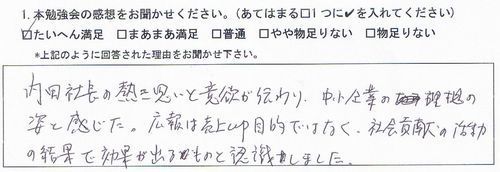 1. 本勉強会の感想をお聞かせください。(あてはまる□1つに✔を入れてください)
☑たいへん満足 □まあまあ満足 □普通 □やや物足りない □物足りない
*上記のように回答された理由をお聞かせ下さい。
内田社長の熱い思いと意欲が伝わり、中小企業の理想の
姿と感じた。広報は売上up目的ではなく、社会貢献の活動
の結果で効果が出るものと認識しました。